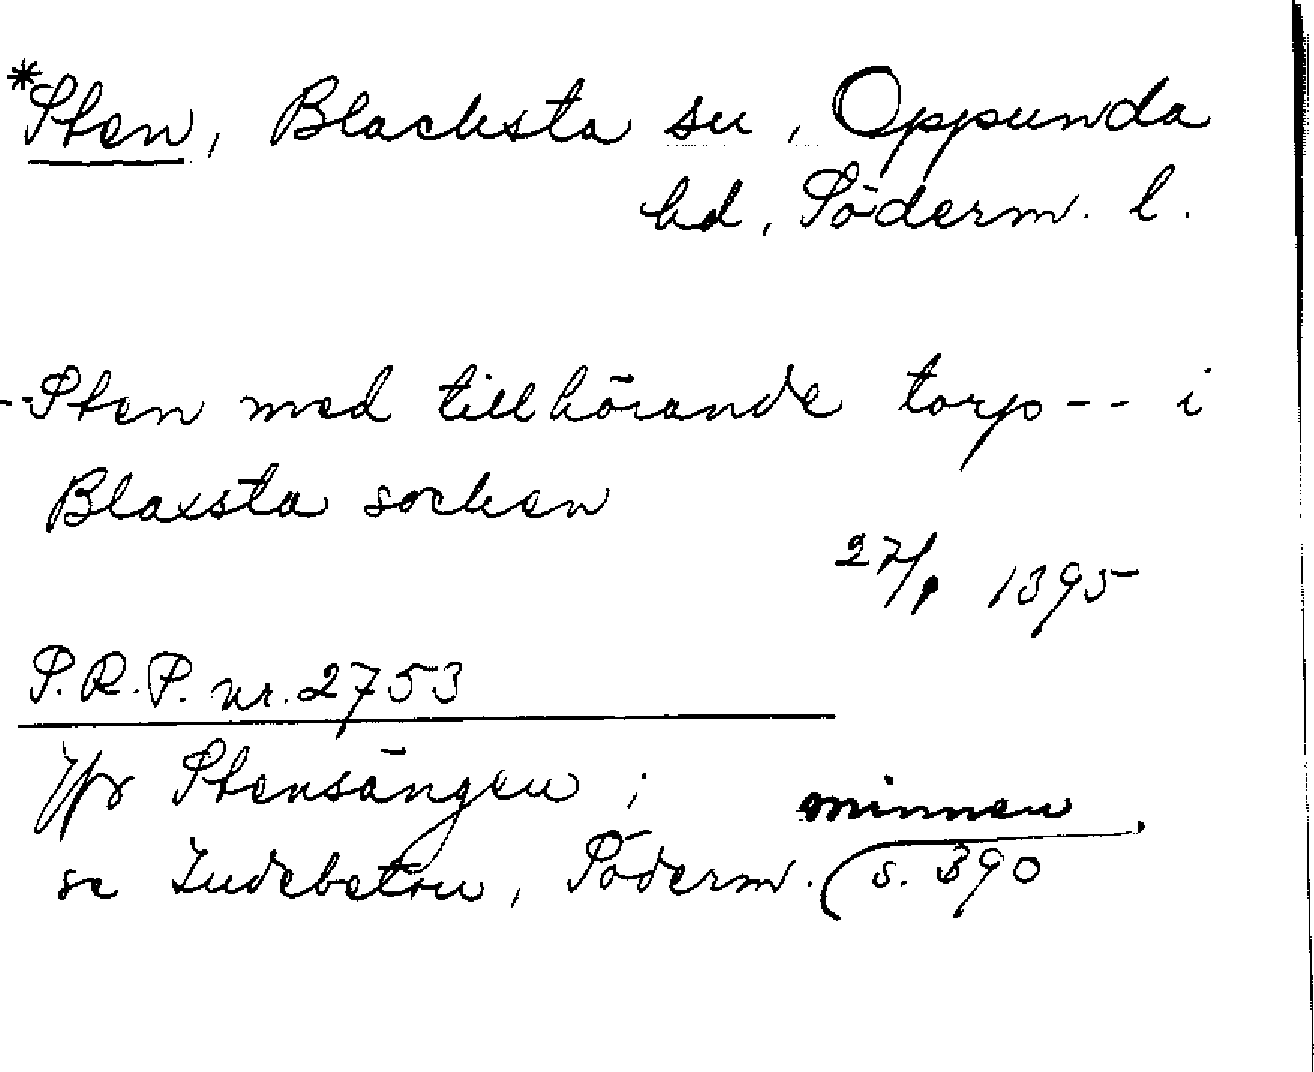 *Sten, Blacksta sn, Oppunda
hd, Söderm. l.
--Sten med tillhörande torp -- i
Blaxsta socken
27/1 1395
S.R.P. nr. 2753
Jfr Stensängen;
se Indebetou, Söderm. minnen,
s. 390